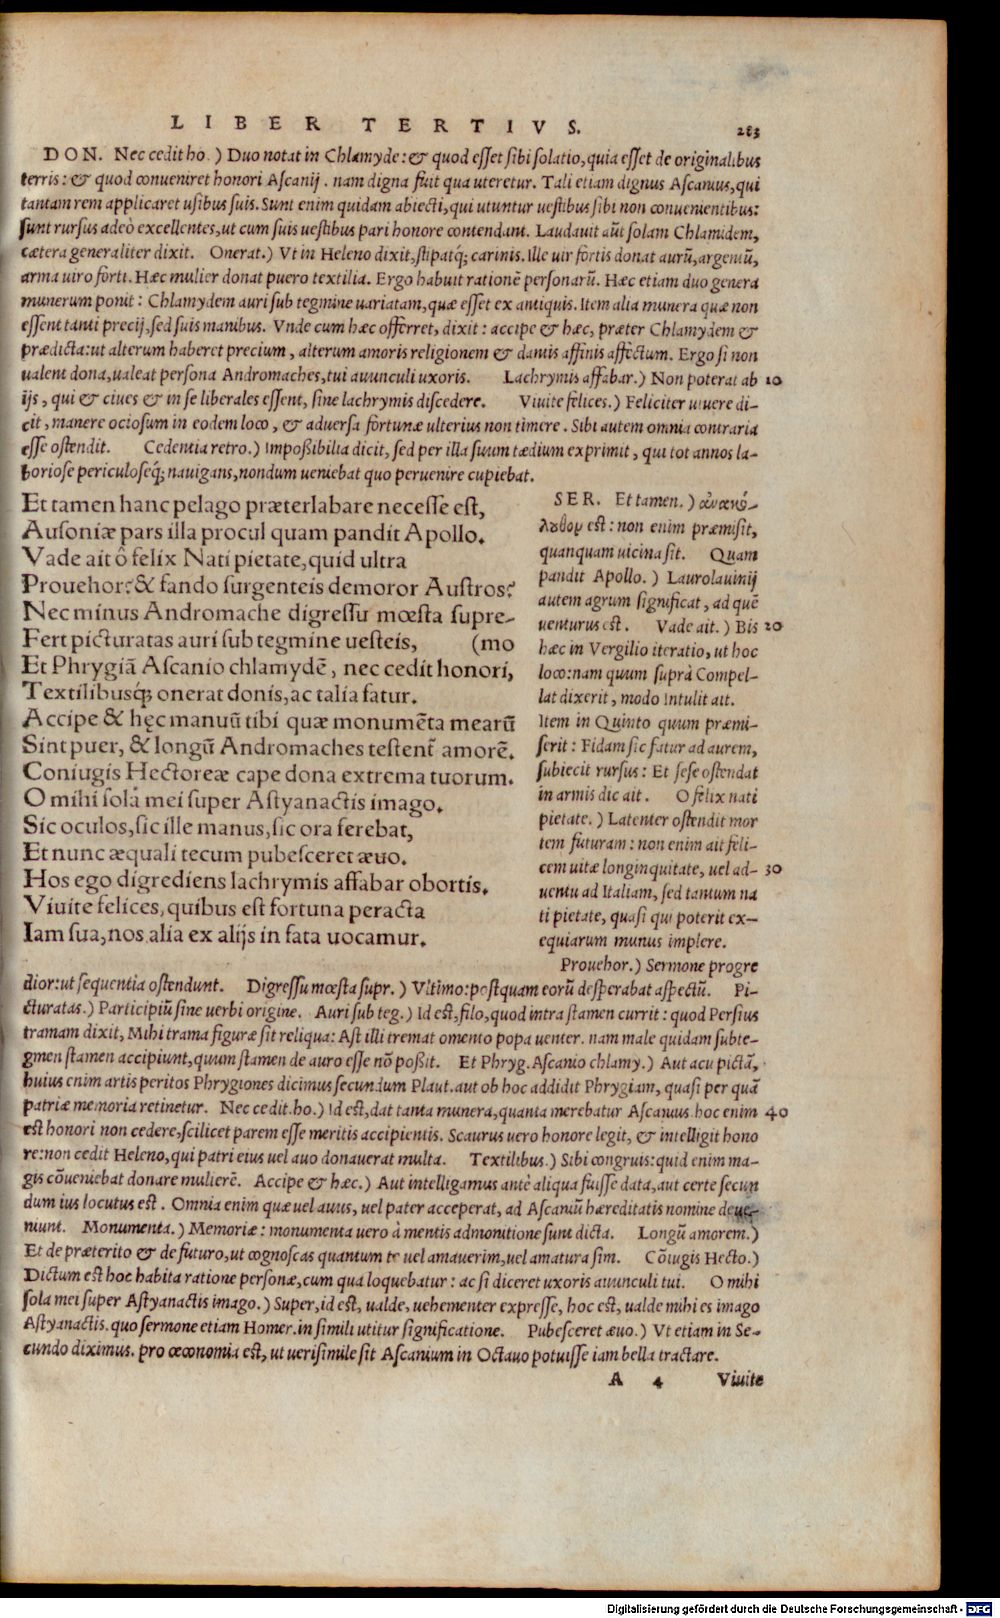 LIBER TERTIVS. 283
DON. Nec cedit ho.) Duo notat in Chlamyde: & quod esset sibi solatio, quia esset de originalibus
terris: & quod conueniret honori Ascanij. nam digna fuit qua uteretur. Tali etiam dignus Ascanius, qui
tantam rem applicaret usibus suis. Sunt enim quidam abiecti, qui utuntur uestibus sibi non conuenientibus:
sunt rursus adeò excellentes, ut cum suis uestibus pari honore contendant. Laudauit aũt solam Chlamidem,
cætera generaliter dixit. Onerat.) Vt in Heleno dixit, stipatq́; carinis. Ille uir fortis donat aurũ, argentũ,
arma uiro forti. Hæc mulier donat puero textilia. Ergo habuit rationẽ personarũ. Hæc etiam duo genera
munerum ponit: Chlamydem auri sub tegmine uariatam, quæ esset ex antiquis. Item alia munera quæ non
essent tanti precij, sed suis manibus. Vnde cum hæc offerret, dixit: accipe & hæc, præter Chlamydem &
prædicta: ut alterum haberet precium, alterum amoris religionem & dantis affinis affectum. Ergo si non
ualent dona, ualeat persona Andromaches, tui auunculi uxoris. Lachrymis affabar.) Non poterat ab 10
ijs, qui & ciues & in se liberales essent, sine lachrymis discedere. Viuite felices.) Feliciter uiuere di-
cit, manere ociosum in eodem loco, & aduersa fortunæ ulterius non timere. Sibi autem omnia contraria
esse ostendit. Cedentia retro.) Impoßibilia dicit, sed per illa suum tædium exprimit, qui tot annos la-
boriose periculoseq́; nauigans, nondum ueniebat quo peruenire cupiebat.
Et tamen hanc pelago præterlabare necesse est,
Ausoniæ pars illa procul quam pandit Apollo.
Vade ait ô felix Nati pietate, quid ultra
Prouehor? & fando surgenteis demoror Austros?
Nec minus Andromache digressu mœsta supre-
Fert picturatas auri sub tegmine uesteis, (mo
Et Phrygiã Ascanio chlamydẽ, nec cedit honori,
Textilibusq́; onerat donis, ac talia fatur.
Accipe & hęc manuũ tibi quæ monumẽta mearũ
Sint puer, & longũ Andromaches testent̃ amorẽ.
Coniugis Hectoreæ cape dona extrema tuorum.
O mihi sola mei super Astyanactis imago.
Sic oculos, sic ille manus, sic ora ferebat,
Et nunc æquali tecum pubesceret æuo.
Hos ego digrediens lachrymis affabar obortis.
Viuite felices, quibus est fortuna peracta
Iam sua, nos alia ex alijs in fata uocamur.
SER. Et tamen.) ἀνακό-
λουθον est: non enim præmisit,
quanquam uicina sit. Quam
pandit Apollo.) Laurolauinij
autem agrum significat, ad quẽ
uenturus est. Vade ait.) Bis 20
hæc in Vergilio iteratio, ut hoc
loco: nam quum suprà Compel-
lat dixerit, modo Intulit ait.
Item in Quinto quum præmi-
serit: Fidam sic fatur ad aurem,
subiecit rursus: Et sese ostendat
in armis dic ait. O felix nati
pietate.) Latenter ostendit mor
tem futuram: non enim ait feli-
cem uitæ longinquitate, uel ad- 30
uentu ad Italiam, sed tantum na
ti pietate, quasi qui poterit ex-
equiarum munus implere.
Prouehor.) Sermone progre
dior: ut sequentia ostendunt. Digressu mœsta supr.) Vltimo: postquam eorũ desperabat aspectũ. Pi-
cturatas.) Participiũ sine uerbi origine. Auri sub teg.) Id est, filo, quod intra stamen currit: quod Persius
tramam dixit, Mihi trama figuræ sit reliqua: Ast illi tremat omento popa uenter. nam male quidam subte-
gmen stamen accipiunt, quum stamen de auro esse nõ poßit. Et Phryg. Ascanio chlamy.) Aut acu pictã,
huius enim artis peritos Phrygiones dicimus secundum Plaut. aut ob hoc addidit Phrygiam, quasi per quã
patriæ memoria retinetur. Nec cedit. ho.) Id est, dat tanta munera, quanta merebatur Ascanius. hoc enim 40
est honori non cedere, scilicet parem esse meritis accipientis. Scaurus uero honore legit, & intelligit hono
re: non cedit Heleno, qui patri eius uel auo donauerat multa. Textilibus.) Sibi congruis: quid enim ma-
gis cõueniebat donare mulierẽ. Accipe & hæc.) Aut intelligamus antè aliqua fuisse data, aut certe secun
dum ius locutus est. Omnia enim quæ uel auus, uel pater acceperat, ad Ascaniũ hæreditatis nomine deue-
niunt. Monumenta.) Memoriæ: monumenta uero à mentis admonitione sunt dicta. Longũ amorem.)
Et de præterito & de futuro, ut cognoscas quantum te uel amauerim, uel amatura sim. Cõiugis Hecto.)
Dictum est hoc habita ratione personæ, cum qua loquebatur: ac si diceret uxoris auunculi tui. O mihi
sola mei super Astyanactis imago.) Super, id est, ualde, uehementer expresse, hoc est, ualde mihi es imago
Astyanactis. quo sermone etiam Homer. in simili utitur significatione. Pubesceret æuo.) Vt etiam in Se-
cundo diximus. pro œconomia est, ut uerisimile sit Ascanium in Octauo potuisse iam bella tractare.
A 4 Viuite
Digitalisierung gefördert durch die Deutsche Forschungsgemeinschaft - DFG